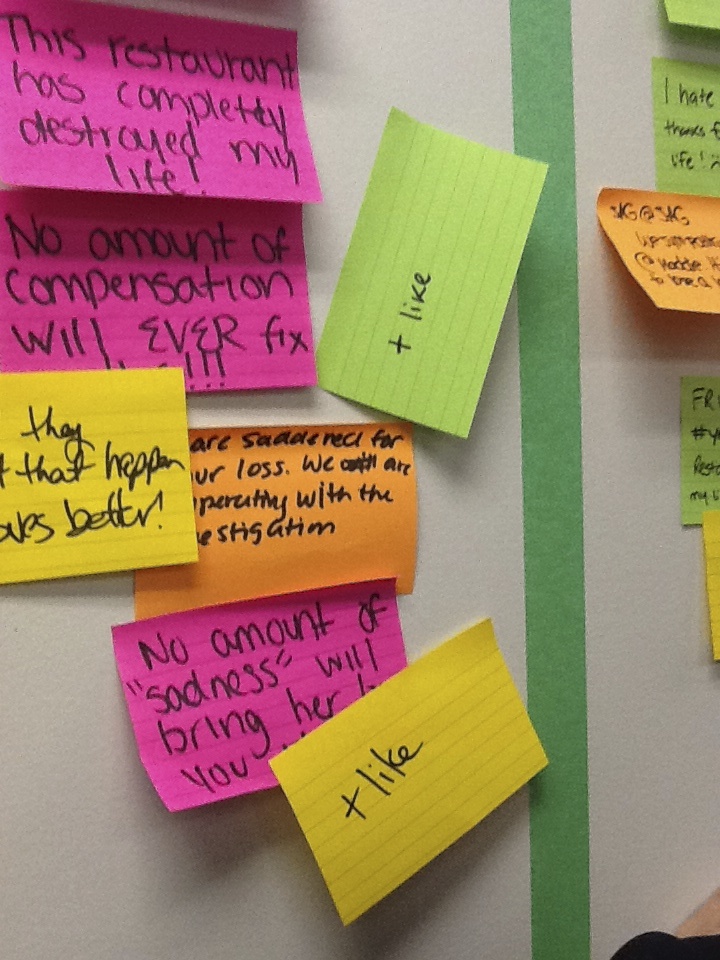 This restaurant
has completly
destroyed my
life!
No amount of
compensation
will EVER fix
!!!
+ like
they
that happen
better!
are saddened for
loss. We are
with the
No amount of
"sadness" will
bring her
you
+ like
I hate
thanks
life!
SKG@SKG
to
FR
my